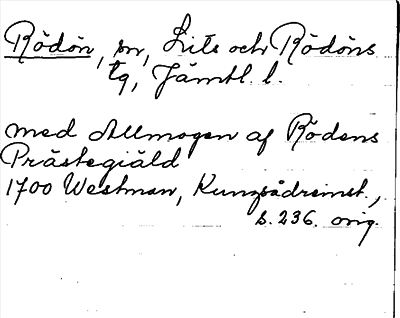 Rödön, sn, Lits och Rödöns
tg, Jämtl. l.
med Allmogen af Rödens
Prästegiäld
1700 Westman, Kungsådreinst.,
s. 236. orig.